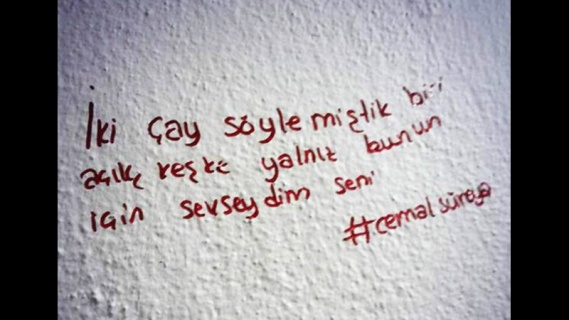 İki çay söylemiştik biri
açık keşke yalnız bunun
için sevseydim seni
#cemal süreya